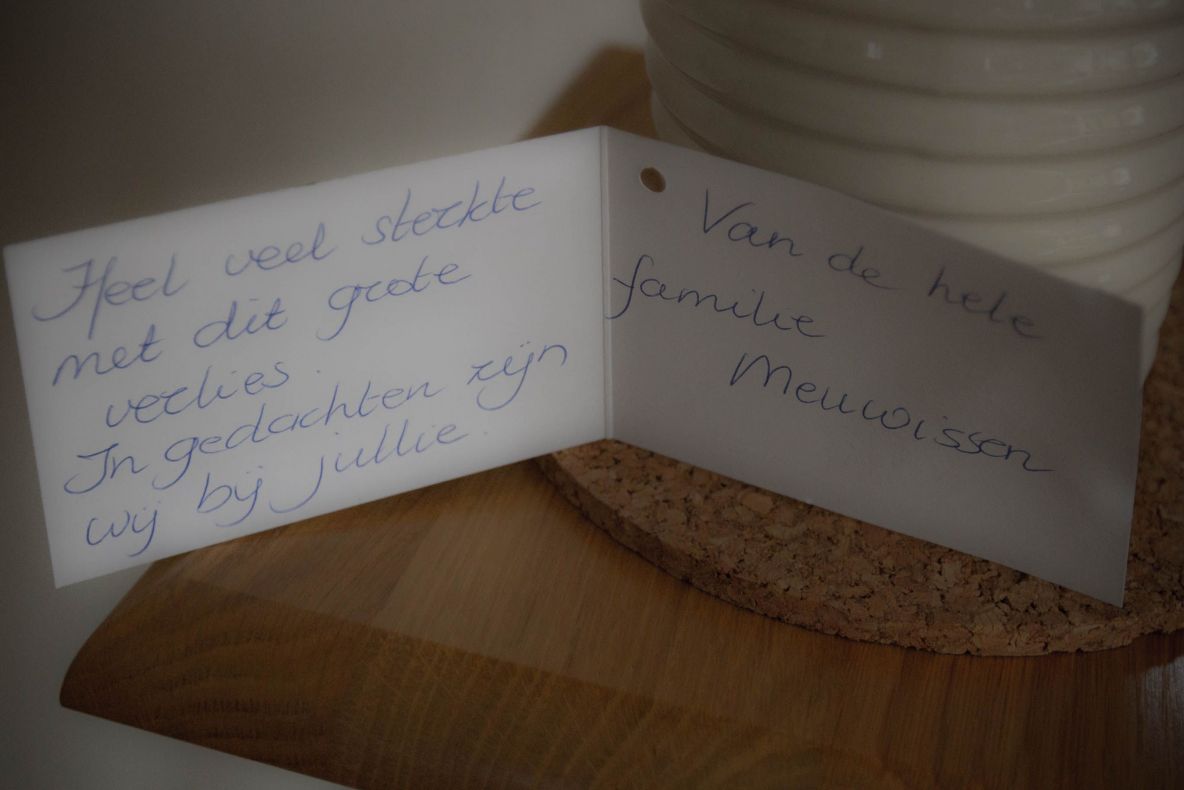 Heel veel sterkte
met dit grote
verlies.
In gedachten zijn
wij bij jullie.
Van de hele
familie
Meuwissen